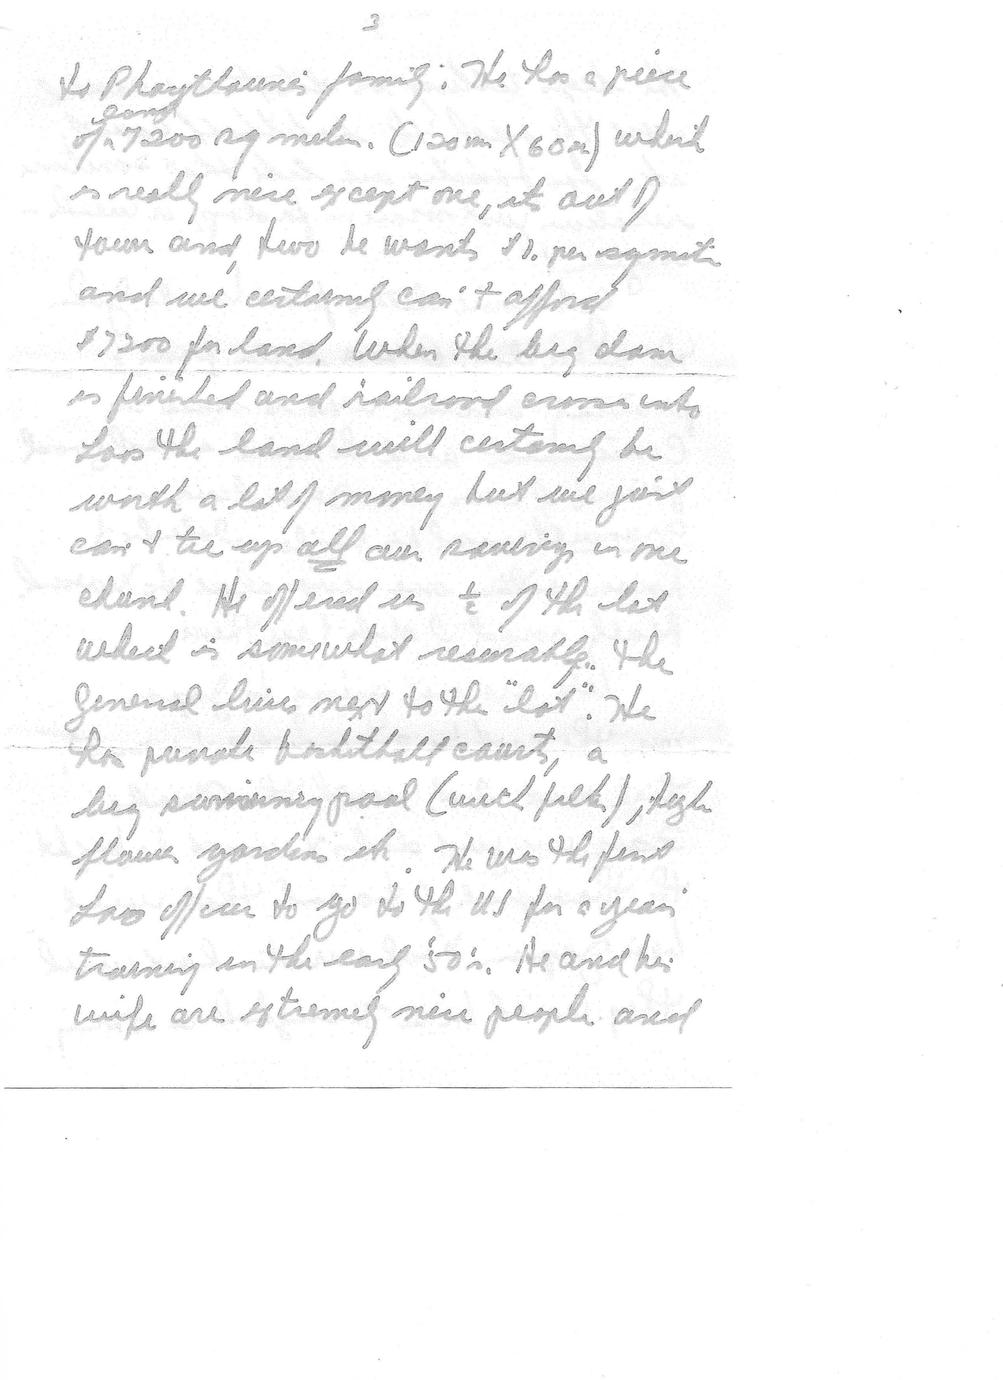 3
to Phaythoune's family. He has a piece
land
of 7200 sq meters. (120m X 60m) which
is really nice except one, its out of
town and, two he wants $1. per sq meter
and we certainly can't afford
$7200 for land. When the big dam
is finished and railroad crosses into
Laos the land will certainly be
worth a lot of money but we just
can't tie up all our savings in one
chunk. He offered us ½ of the lot
which is somewhat reasonable. The
General lives next to the "lot". He
has private basketball courts, a
big swimming pool (with filter), huge
flower gardens etc. He was the first
Laos officer to go to the US for a years
training in the early '50's. He and his
wife are extremely nice people and